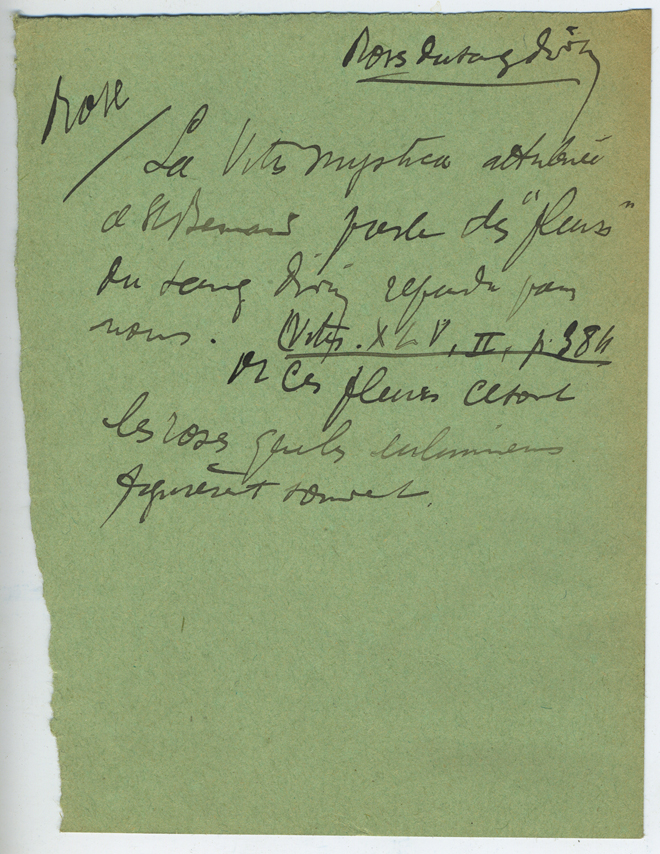 Roses du sang divin
Rose
La Vitis mystica attribuée
à St Bernard parle des "fleurs"
du sang divin répandu pour
nous. (Vitis. XLV, II, p. 384
Or ces fleurs ce sont
les roses que les enlumineurs
figurèrent souvent.